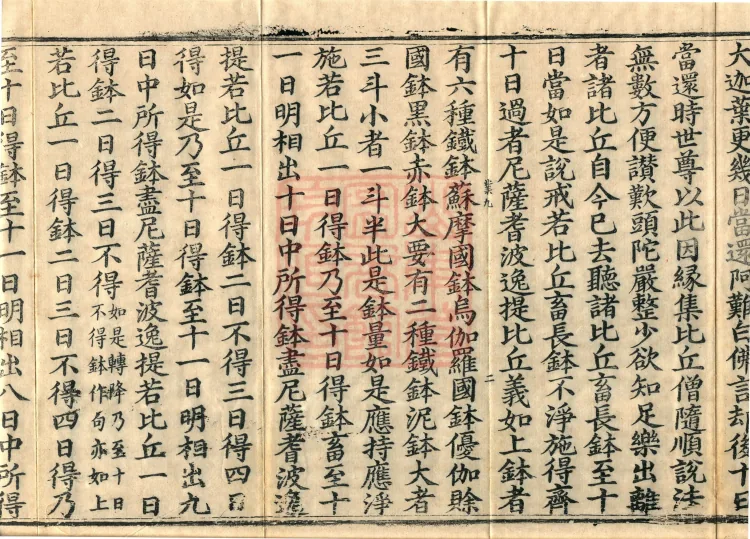 大迦葉更幾日當還阿難白佛言却後十日
當還時世尊以此因緣集比丘僧隨順說法
無數方便讚歎頭陀嚴整少欲知足樂出離
者諸比丘自今已去聽諸比丘畜長鉢至十
日當如是說戒若比丘畜長鉢不淨施得齊
十日過者尼薩耆波逸提比丘義如上鉢者
業九
二
有六種鐵鉢蘇摩國鉢烏伽羅國鉢優伽賒
國鉢黑鉢赤鉢大要有二種鐵鉢泥鉢大者
三斗小者一斗半此是鉢量如是應持應淨
施若比丘一日得鉢乃至十日得鉢畜至十
一日明相出十日中所得鉢盡尼薩耆波逸
提若比丘一日得鉢二日不得三日得四日
得如是乃至十日得鉢至十一日明相出九
日中所得鉢盡尼薩耆波逸提若比丘一日
得鉢二日得三日不得如是轉降乃至十日
不得鉢作句亦如上
若比丘一日得鉢二日三日不得四日得乃
至十日得鉢至十一日明相出八日中所得